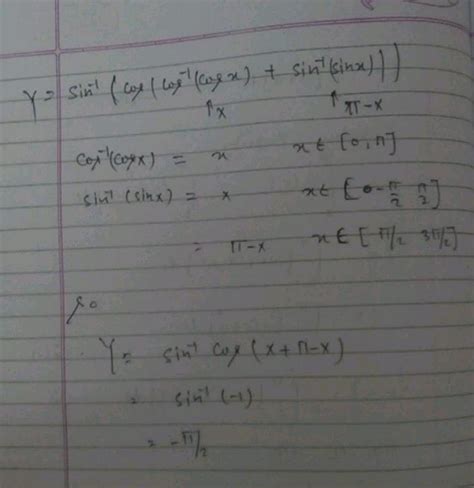 Y = sin⁻¹ (cos (cos⁻¹(cos x) + sin⁻¹(sin x)))
↑x ↑π-x
cos⁻¹(cos x) = x x ∈ [0, π]
sin⁻¹ (sin x) = x x ∈ [-π/2 π/2]
= π-x x ∈ [π/2 3π/2]
So
Y = sin⁻¹ cos (x + π - x)
= sin⁻¹ (-1)
= -π/2